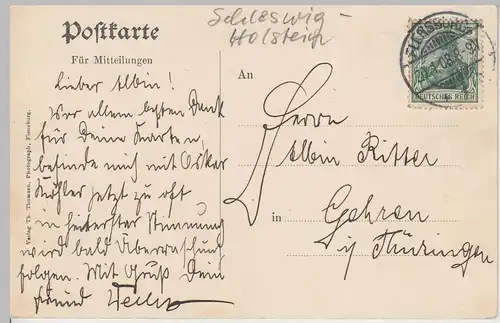 Postkarte
Für Mitteilungen
Schleswig-
Holstein
FLENSBURG
DEUTSCHES REICH
Lieber Albin!
Vor allem besten Dank
für Deine Karten,
befinde mich mit Oskar
Köhler jetzt zu oft
in heiterster Stimmung
wird bald Überraschung
folgen. Mit Gruß Dein
Freund
An
Herrn
Albin Ritter
in Gehren
i/ Thüringen
Verlag Th. Thomsen, Photograph, Flensburg.